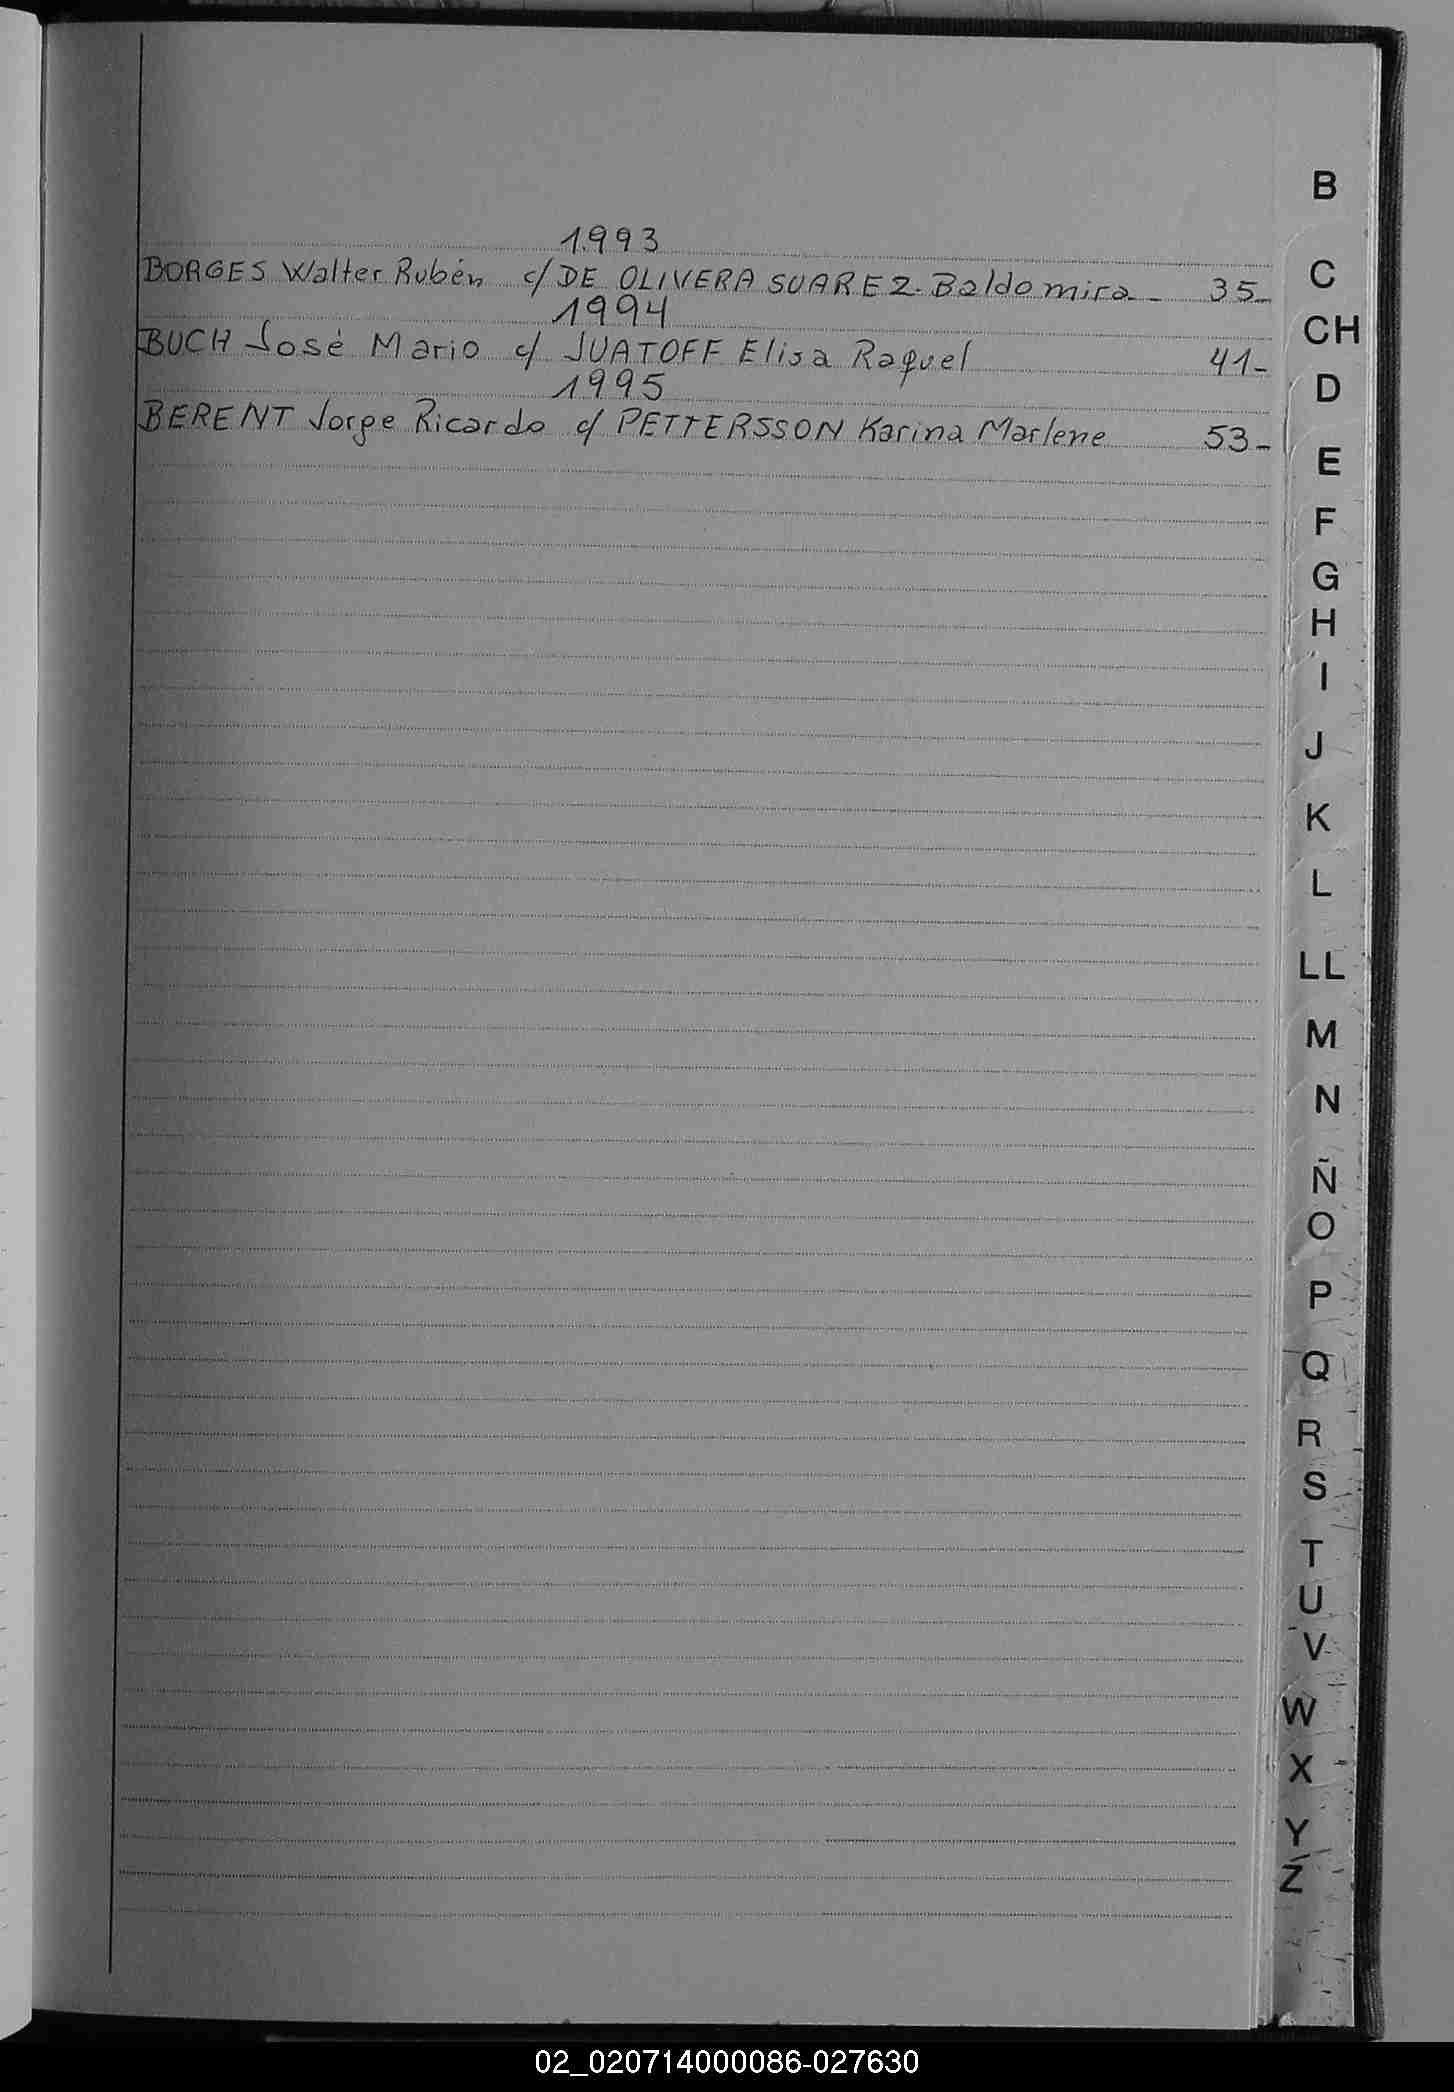 1993
BORGES Walter Rubén c/ DE OLIVERA SUAREZ Baldomira - 35-
1994
BUCH José Mario c/ JUATOFF Elisa Raquel 41-
1995
BERENT Jorge Ricardo c/ PETTERSSON Karina Marlene 53-
B
C
CH
D
E
F
G
H
I
J
K
L
LL
M
N
Ñ
O
P
Q
R
S
T
U
V
W
X
Y
Z
02_020714000086-027630